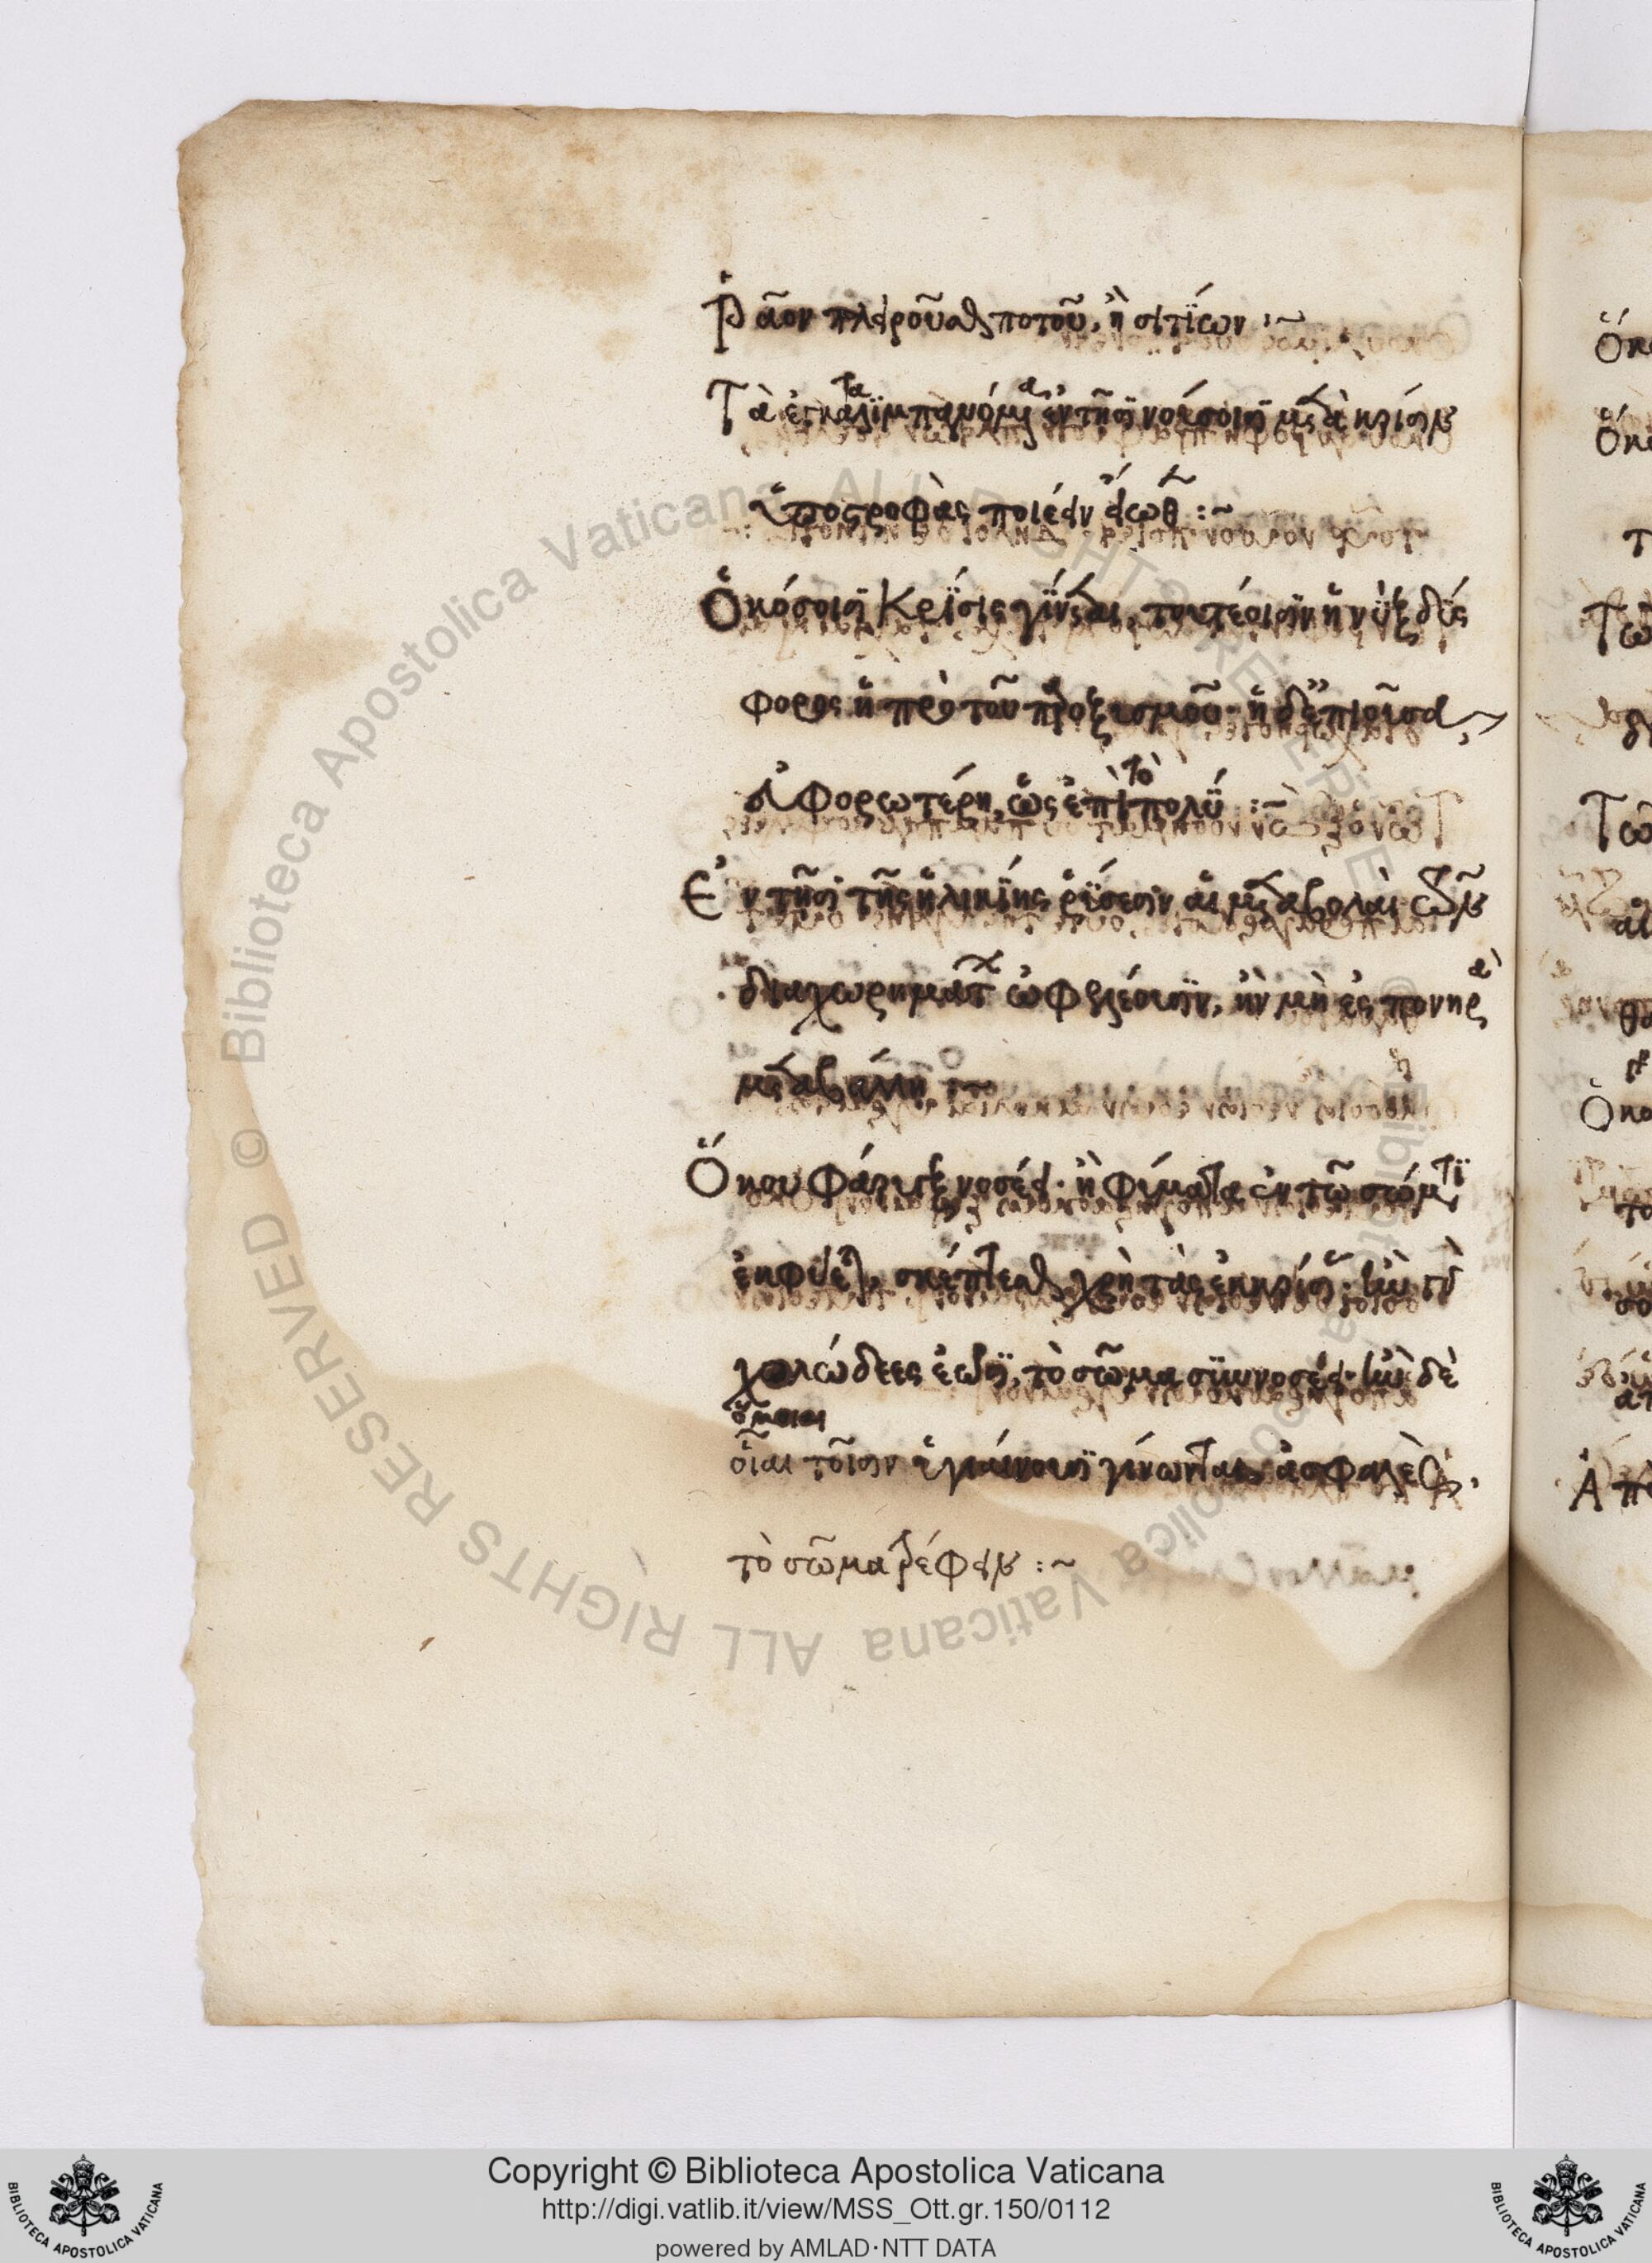 Ῥᾷον πληροῦσθαι ποτοῦ, ἢ σιτίων :~
Τὰ ἐγκαταλιμπανόμενα ἐν τῆσι νούσοισι μετὰ κρίσιν
ὑποστροφὰς ποιέειν εἴωθεν :~
Ὁκόσοισι κρίσις γίνεται, τουτέοισιν ἡ νὺξ δύσ
φορος ἡ πρὸ τοῦ παροξυσμοῦ· ἡ δ' ἐπιοῦσα
εὐφορωτέρη, ὡς ἐπὶ τὸ πολύ :~
Ἐν τῇσι τῆς κοιλίης ῥύσεσιν αἱ μεταβολαὶ τῶν
διαχωρημάτων ὠφελέουσιν, ἢν μὴ ἐς πονηρὰ
μεταβάλλῃ :~
Ὅκου φάρυγξ νοσέει· ἢ φύματα ἐν τῷ σώματι
ἐκφύεται, σκέπτεσθαι χρὴ τὰς ἐκκρίσιας· ἢν γὰρ
χολώδεες ἔωσι, τὸ σῶμα συννοσέει· ἢν δὲ
ὅμοιαι
οἷαι τοῖσιν ὑγιαίνουσι γίνωνται, ἀσφαλὲς
τὸ σῶμα τρέφειν :~
Copyright © Biblioteca Apostolica Vaticana
http://digi.vatlib.it/view/MSS_Ott.gr.150/0112
powered by AMLAD·NTT DATA
BIBLIOTECA APOSTOLICA VATICANA
BIBLIOTECA APOSTOLICA VATICANA
© Biblioteca Apostolica Vaticana ALL RIGHTS RESERVED
© Biblioteca Apostolica Vaticana ALL RIGHTS RESERVED